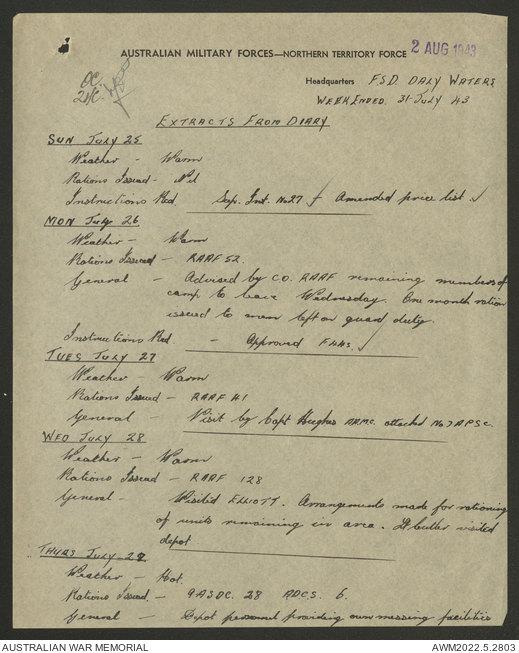 2 AUG 1943
AUSTRALIAN MILITARY FORCES—NORTHERN TERRITORY FORCE
OC.
2I/C.
Headquarters F.S.D. DALY WATERS
WEEK ENDED 31 JULY 43
EXTRACTS FROM DIARY
SUN JULY 25
Weather - Warm
Rations Issued - Nil
Instructions Red. Sup. Inst. No 27 ✓ Amended price list. ✓
MON JULY 26
Weather - Warm
Rations Issued - RAAF 52.
General - Advised by C.O. RAAF remaining members of
camp to leave Wednesday. One month ration
issued to men left on guard duty.
Instructions Red - Approved ✓
TUES JULY 27
Weather - Warm
Rations Issued - RAAF 41
General - Visit by Capt Hughes attached No 7 APSC.
WED JULY 28
Weather - Warm
Rations Issued - RAAF 128
General - Visited ELLIOTT. Arrangements made for rationing
of units remaining in area. Lt visited
depot
THURS JULY 29
Weather - Hot.
Rations Issued. - 9ASDC. 28 ADCS. 6.
General - Depot personnel providing own messing facilities
AUSTRALIAN WAR MEMORIAL
AWM2022.5.2803